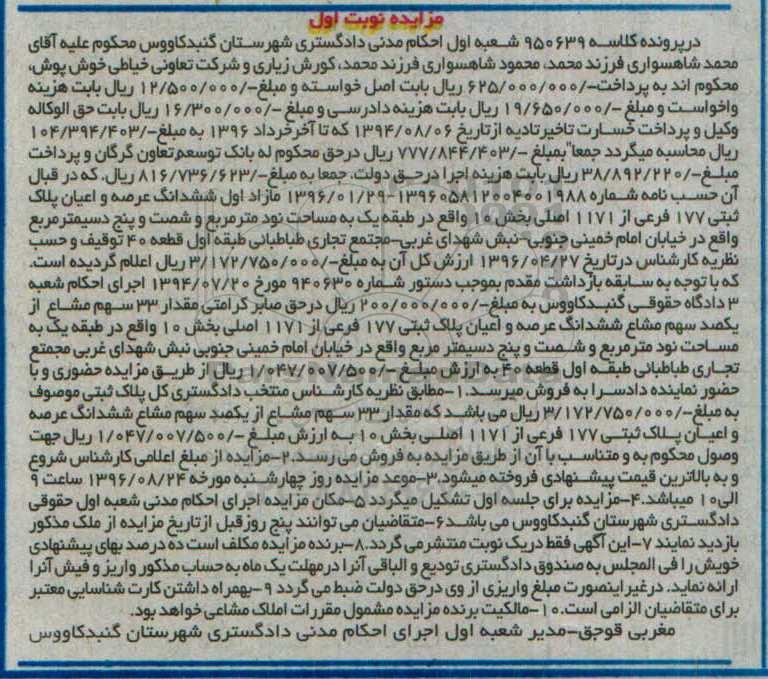 مزایده نوبت اول
درپرونده کلاسه ۹۵۰۶۳۹ شعبه اول احکام مدنی دادگستری شهرستان گنبدکاووس محکوم علیه آقای
محمد شاهسواری فرزند محمد، محمود شاهسواری فرزند محمد، کورش زیاری و شرکت تعاونی خیاطی خوش پوش،
محکوم اند به پرداخت-/۶۲۵/۰۰۰/۰۰۰ ریال بابت اصل خواسته و مبلغ-/۱۲/۵۰۰/۰۰۰ ریال بابت هزینه
واخواست و مبلغ -/۱۹/۶۵۰/۰۰۰ ریال بابت هزینه دادرسی و مبلغ -/۱۶/۳۰۰/۰۰۰ ریال بابت حق الوکاله
وکیل و پرداخت خسارت تاخیرتادیه ازتاریخ ۱۳۹۴/۰۸/۰۶ که تا آخرخرداد ۱۳۹۶ به مبلغ-/۱۰۴/۳۹۴/۴۰۳
ریال محاسبه میگردد جمعا"بمبلغ -/۷۷۷/۸۴۴/۴۰۳ ریال درحق محکوم له بانک توسعه تعاون گرگان و پرداخت
مبلغ-/۳۸/۸۹۲/۲۲۰ ریال بابت هزینه اجرا درحق دولت. جمعا به مبلغ-/۸۱۶/۷۳۶/۶۲۳ ریال. که در قبال
آن حسب نامه شماره ۱۳۹۶۰۵۸۱۲۰۰۴۰۰۱۹۸۸-۱۳۹۶/۰۱/۲۹ مازاد اول ششدانگ عرصه و اعیان پلاک
ثبتی ۱۷۷ فرعی از ۱۱۷۱ اصلی بخش ۱۰ واقع در طبقه یک به مساحت نود متر مربع و شصت و پنج دسیمتر مربع
واقع در خیابان امام خمینی جنوبی-نبش شهدای غربی-مجتمع تجاری طباطبائی طبقه اول قطعه ۴۰ توقیف و حسب
نظریه کارشناس درتاریخ ۱۳۹۶/۰۴/۲۷ ارزش کل آن به مبلغ-/۳/۱۷۲/۷۵۰/۰۰۰ ریال اعلام گردیده است.
که با توجه به سابقه بازداشت مقدم بموجب دستور شماره ۹۴۰۶۳۰ مورخ ۱۳۹۴/۰۷/۲۰ اجرای احکام شعبه
۳ دادگاه حقوقی گنبدکاووس به مبلغ-/۲۰۰/۰۰۰/۰۰۰ ریال درحق صابر کرامتی مقدار ۳۳ سهم مشاع از
یکصد سهم مشاع ششدانگ عرصه و اعیان پلاک ثبتی ۱۷۷ فرعی از ۱۱۷۱ اصلی بخش ۱۰ واقع در طبقه یک به
مساحت نود مترمربع و شصت و پنج دسیمتر مربع واقع در خیابان امام خمینی جنوبی نبش شهدای غربی مجمتع
تجاری طباطبائی طبقه اول قطعه ۴۰ به ارزش مبلغ -/۱/۰۴۷/۰۰۷/۵۰۰ ریال از طریق مزایده حضوری و با
حضور نماینده دادسرا به فروش میرسد.۱-مطابق نظریه کارشناس منتخب دادگستری کل پلاک ثبتی موصوف
به مبلغ-/۳/۱۷۲/۷۵۰/۰۰۰ ریال می باشد که مقدار ۳۳ سهم مشاع از یکصد سهم مشاع ششدانگ عرصه
و اعیان پلاک ثبتی ۱۷۷ فرعی از ۱۱۷۱ اصلی بخش ۱۰ به ارزش مبلغ -/۱/۰۴۷/۰۰۷/۵۰۰ ریال جهت
وصول محکوم به و متناسب با آن از طریق مزایده به فروش می رسد.۲-مزایده از مبلغ اعلامی کارشناس شروع
و به بالاترین قیمت پیشنهادی فروخته میشود.۳-موعد مزایده روز چهارشنبه مورخه ۱۳۹۶/۰۸/۲۴ ساعت ۹
الی۱۰ میباشد.۴-مزایده برای جلسه اول تشکیل میگردد ۵-مکان مزایده اجرای احکام مدنی شعبه اول حقوقی
دادگستری شهرستان گنبدکاووس می باشد۶-متقاضیان می توانند پنج روز قبل ازتاریخ مزایده از ملک مذکور
بازدید نمایند ۷-این آگهی فقط دریک نوبت منتشرمی گردد.۸-برنده مزایده مکلف است ده درصد بهای پیشنهادی
خویش را فی المجلس به صندوق دادگستری تودیع و الباقی آنرا درمهلت یک ماه به حساب مذکور واریز و فیش آنرا
ارائه نماید. درغیر اینصورت مبلغ واریزی از وی درحق دولت ضبط می گردد ۹-بهمراه داشتن کارت شناسایی معتبر
برای متقاضیان الزامی است.۱۰-مالکیت برنده مزایده مشمول مقررات املاک مشاعی خواهد بود.
مغربی قوجق-مدیر شعبه اول اجرای احکام مدنی دادگستری شهرستان گنبدکاووس